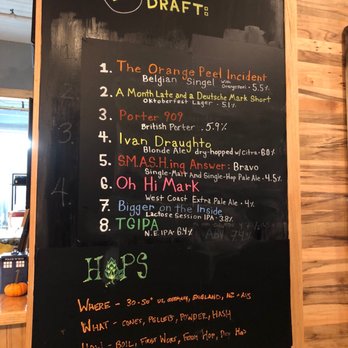 DRAFT:
1. The Orange Peel Incident
Belgian Singel with Orange Peel - 5.5%
2. A Month Late and a Deutsche Mark Short
Oktoberfest Lager - 5.1%
3. Porter 909
British Porter - 5.9%
4. Ivan Draughto
Blonde Ale dry-hopped w/ Citra - 6.0%
5. S.M.A.S.H.ing Answer: Bravo
Single-Malt And Single-Hop Pale Ale - 4.5%
6. Oh Hi Mark
West Coast Extra Pale Ale - 4%
7. Bigger on the Inside
Lactose Session IPA - 3.8%
8. TGIPA
N.E. IPA - 6.4%
HOPS
WHERE - 30-50° GERMANY, ENGLAND,
WHAT - CONES, PELLETS, POWDER, HASH
HOW - BOIL, FIRST WORT, HOP, DRY HOP